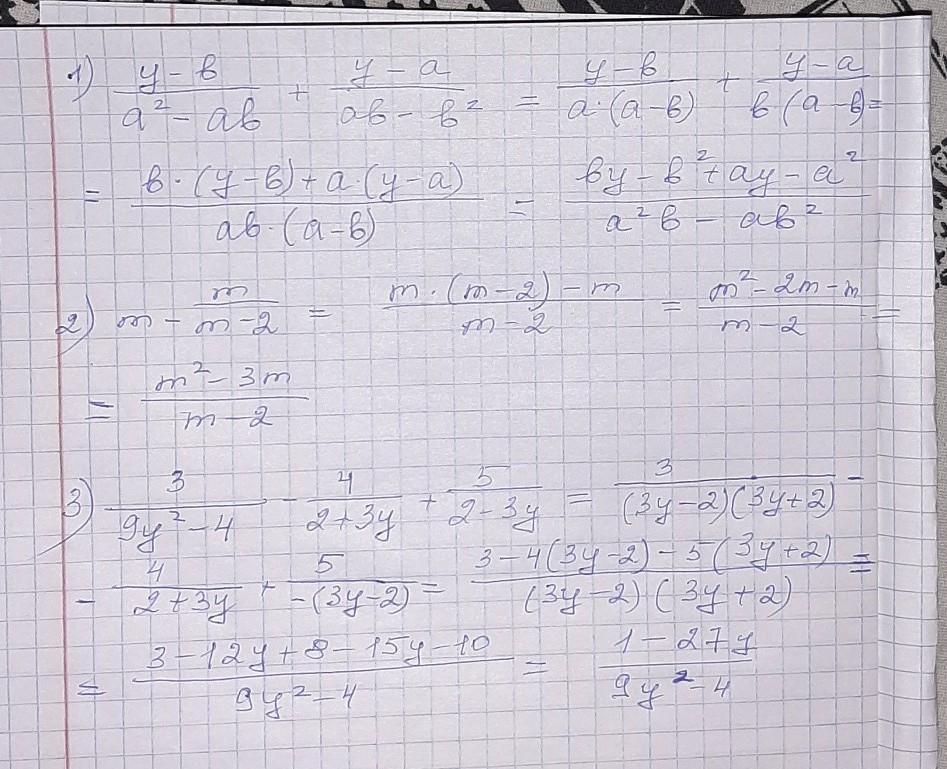 1) (y-b)/(a²-ab) + (y-a)/(ab-b²) = (y-b)/(a·(a-b)) + (y-a)/(b(a-b) =
= (b·(y-b)+a·(y-a))/(ab·(a-b)) = (by-b²+ay-a²)/(a²b-ab²)
2) m - m/(m-2) = (m·(m-2)-m)/(m-2) = (m²-2m-m)/(m-2) =
= (m²-3m)/(m-2)
3) 3/(9y²-4) - 4/(2+3y) + 5/(2-3y) = 3/((3y-2)(3y+2)) -
- 4/(2+3y) + 5/(-(3y-2)) = (3-4(3y-2)-5(3y+2))/((3y-2)(3y+2)) =
= (3-12y+8-15y-10)/(9y²-4) = (1-27y)/(9y²-4)